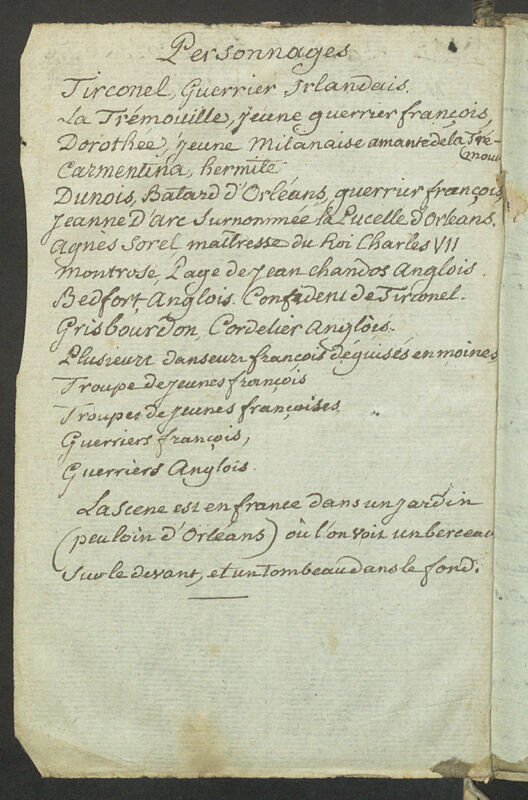 Personnages
Tirconel, Guerrier Irlandais.
La Trémouille, jeune guerrier françois,
Dorothée, jeune Milanaise amante de la Tré-
mouil
Carmentina, hermite
Dunois, Batard d'Orléans, guerrier françois,
Jeanne D'arc Surnommée la Pucelle d'Orleans.
Agnès Sorel maîtresse du Roi Charles VII
Montrose, Page de Jean Chandos Anglois.
Bedfort, Anglois. Confident de Tirconel.
Grisbourdon, Cordelier Anglois.
Plusieurs danseurs françois déguisés en moines
Troupe de jeunes françois
Troupes de jeunes françoises,
Guerriers françois,
Guerriers Anglois.
La Scene est en france dans un jardin
(peu loin d'Orléans) où l'on voit un berceau
Sur le devant, et un Tombeau dans le fond.